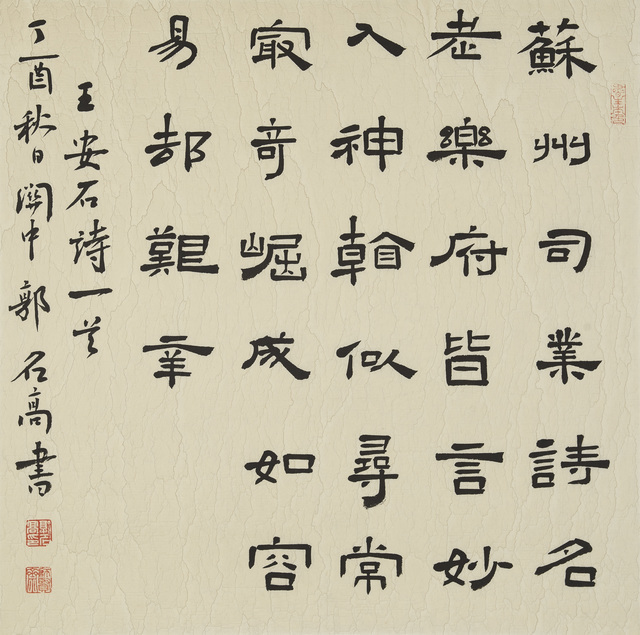 蘇州司業詩名
老樂府皆言妙
入神看似尋常
冣竒崛成如容
易却艱辛
王安石詩一首
丁酉秋日関中郭名高書